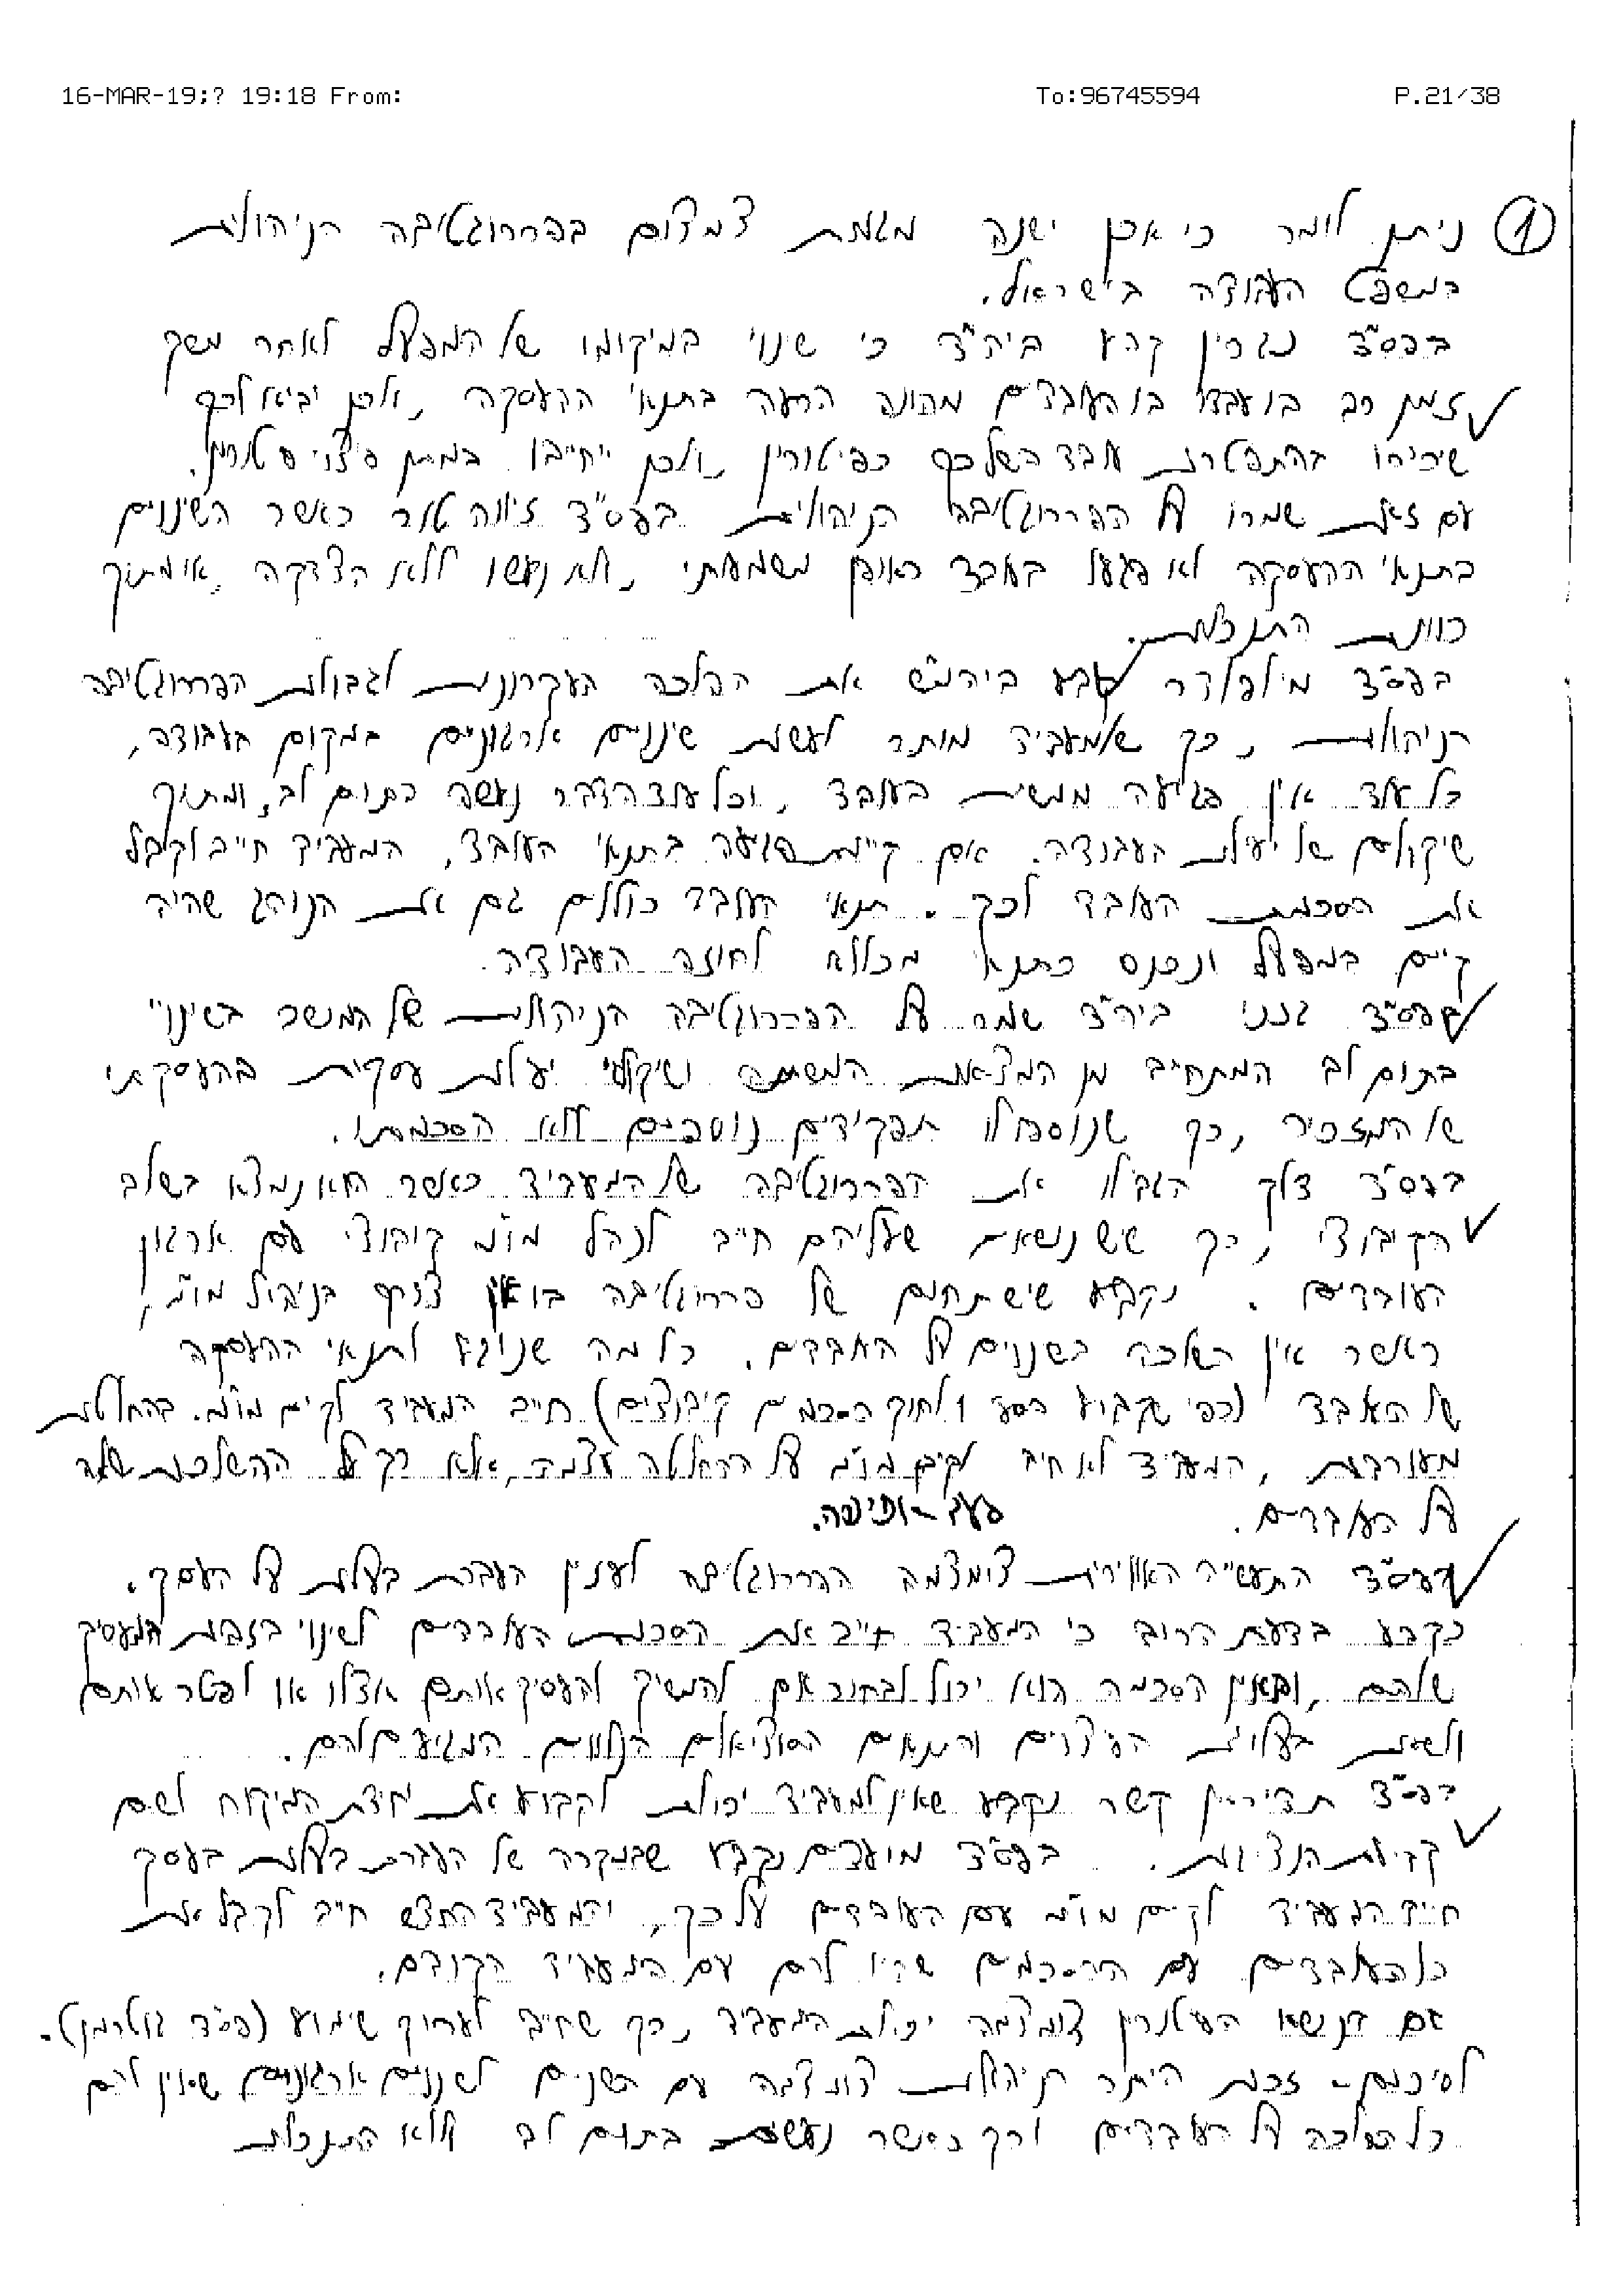 16-MAR-19;? 19:18 From: To:96745594 P.21/38
① ניתן לומר כי אכן ישנה מגמת צמצום בפררוגטיבה הניהולית
במשפט העבודה בישראל.
בפס"ד נגרין קבע ביה"ד כי שינוי במיקומו של המפעל לאחר משך
זמן רב בו עבדו בו העובדים מהווה הרעה בתנאי ההעסקה, ולכן יביא לכך
שיכירו בהתפטרות עובד בשל כך כפיטורין ולכן יחייבו במתן פיצויי פיטורין.
עם זאת שמרו על הפררוגטיבה הניהולית בפס"ד כאשר השינויים
בתנאי ההעסקה לא פגעו בעובד באופן משמעותי, ולא נעשו ללא הצדקה או מתוך
כוונת התנכלות.
בפס"ד מילפלדר קבע ביהמ"ש את ההלכה העקרונית לגבולות הפררוגטיבה
הניהולית, כך שלמעביד מותר לעשות שינויים ארגוניים במקום העבודה,
כל עוד אין פגיעה ממשית בעובד, וכל עוד הדבר נעשה בתום לב, ומתוך
שיקולים של יעילות העבודה. אם קיימת פגיעה בתנאי העובד, המעביד חייב לקבל
את הסכמת העובד לכך. תנאי העובד כוללים גם את הנוהג שהיה
קיים במפעל ונכנס כתנאי מכללא לחוזה העבודה.
בפס"ד גנני ביה"ד שמר על הפררוגטיבה הניהולית של המנשר בשינוי
בתום לב המתחייב מן המציאות המשתנה ושיקולי יעילות עסקית בהעסקתו
של המזכיר, כך שנוספו לו תפקידים נוספים ללא הסכמתו.
בפס"ד דלק הגבילו את הפררוגטיבה של המעביד כאשר הוא נמצא בשלב
הקיבוצי, כך שיש נושאים שעליהם חייב לנהל מו"מ קיבוצי עם ארגון
העובדים. נקבע שיש תחום של פררוגטיבה בו אין צורך בניהול מו"מ,
כאשר אין השלכה בשינויים על העובדים. כל מה שנוגע לתנאי ההעסקה
של העובד (כפי שקבוע בסע' 1 לחוק הסכמים קיבוציים) חייב המעביד לקיים מו"מ. בהחלטות
מעורבות, המעביד לא חייב לקיים מו"מ על ההחלטה עצמה, אלא רק על ההשלכות שלה
על העובדים.
בפס"ד התעשייה האווירית צימצמה הפררוגטיבה לעניין העברת בעלות על העסק.
נקבע בדעת הרוב כי המעביד חייב את הסכמת העובדים לשינוי בזהות המעסיק
שלהם, ובאין הסכמה הוא יכול לבחור אם להמשיך להעסיק אותם אצלו או לפטר אותם
ולשאת בעלויות הפיצויים והתנאים הסוציאלים הנלווים המגיעים להם.
בפס"ד תדיראן קשר נקבע שאין למעביד יכולת לקבוע את יחידת המיקוח לשם
קריאת הנציגות. בפס"ד מועדים נקבע שבמקרה של העברת בעלות בעסק
חייב המעביד לקיים מו"מ עם העובדים על כך, והמעביד החדש חייב לקבל את
כל העובדים עם ההסכמים שהיו להם עם המעביד הקודם.
גם בנושא הפיטורין צומצמה יכולת המעביד, כך שחייב לערוך שימוע (פס"ד גוטרמן).
לסיכום - זכות היתר הניהולית צומצמה עם השנים לשינויים ארגוניים שאין להם
כל השלכה על העובדים ורק כאשר נעשית בתום לב וללא התנכלות